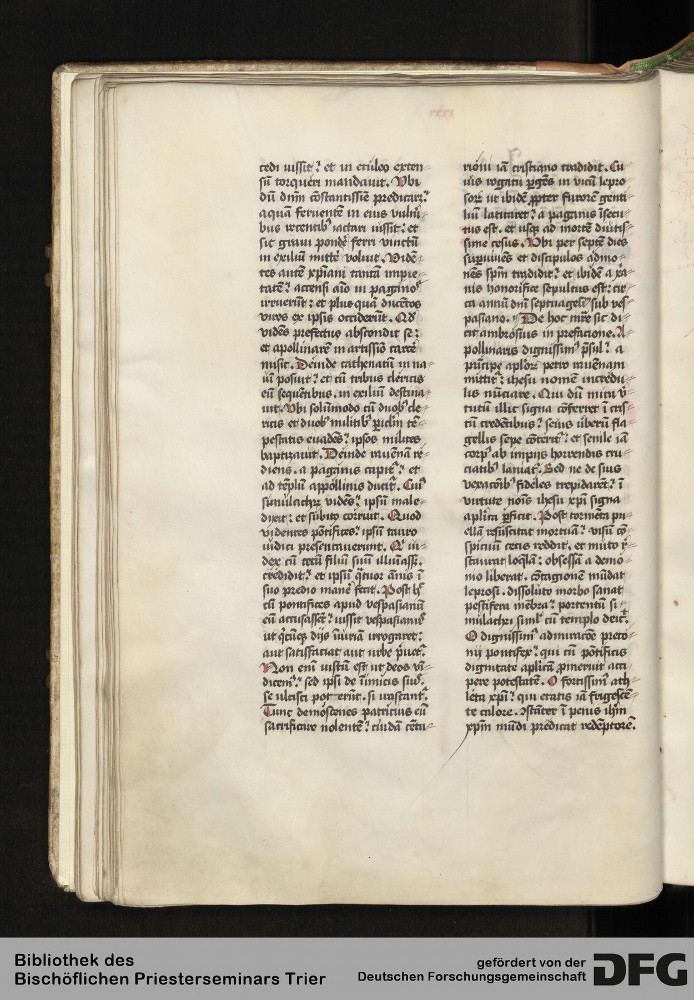 cedi iussit: et in eculeo exten-
sū torqueri mandauit. Vbi
dū dn̄m cōstantissīe predicar̄:
aquā feruentē in eius vulnī-
bus recentib; iactari iussit: et
sic graui pondē ferri vinctū
in exiliū mittē voluit. Vidē-
tes autē xp̄iani tantā impie-
tatē: accensi aīo in paganos
irruerūt: et plus quā ducētos
viros ex ipsis occiderūt. Qd
vidēs prefectus abscondit se:
et apollinarē in artissīo carcē
misit. Deinde cathenatū in na-
uī posuit: et cū tribus clericis
eū sequētibus. in exiliū destina-
uit. Vbi solūmodo cū duob; cle-
ricis et duob; militib; pericl'm tē-
pestatis euadēs: ipsos milites
baptizauit. Deinde rauēnā re-
diens. a paganis capit̄: et
ad tēplū appollinis ducit̄. Cui9
simulachrū vidēs: ipsū male-
dixit: et subito corruit. Quod
videntes pōtifices: ipsū tauro
iudici presentauerunt. Qi iu-
dex cū cecū filiū suū illūīass;
credidit: et ipsū q̄tuor ānis ī
suo predio manē fecit. Post h̄
cū pontifices apud vespasianū
eū accusassēt: iussit vespasian9
ut q̄cūq; dijs iniuriā irrogaret:
aut satisfaciat aut urbe p̄uet̄.
Non enī iustū est ut deos vī-
dicem9: sed ipsi de īimicis suis
se ulcisci poterūt. si irascant̄.
Tunc demostenes patricius eū
sacrificare nolentē: cuidā cētu-
rioni iā cristiano tradidit. Cu-
ius rogatu pergēs in vicū lepro
sor̄ ut ibidē propter furorē genti
liū latitaret: a paganis īsecu
tus est. et usq; ad mortē diutis-
sime cesus. Vbi per septē dies
superuiuēs et discipulos admo-
nēs sp̄m tradidit: et ibidē a xp̄a-
nis honorifice sepultus est: cir-
ca annū dn̄i septuagesi sub ves-
pasiano. De hoc mr̄e sic di-
cit ambrosius in prefacione. A-
pollinaris dignissim9 p̄sul: a
principe aplor̄ petro rauēnam
mittit̄: ihesu nomē incredu-
lis nūciare. Qui dū miras v̄-
tutū illic signa cōferret ī cris
tū credētibus: sepius uberū fla-
gellis sepe cōterit̄: et senile iā
corp9 ab impijs horrendis cru-
ciatib; laniat̄. Sed ne de suis
vexacōib; fideles trepidarēt: ī
virtute nois ihesu xp̄i signa
aplīca p̄ficit. Post tormēta pu-
ellā resuscitat mortuā: visū cō-
spicuū cecis reddit. et muto r̄-
staurat loq̄lā: obsessā a demo-
nio liberat. cōtagionē mūdat
leprosi. dissoluto morbo sanat
pestifera mēbra: portentū si-
mulachri simul cū templo deicit.
O dignissim9 admiracōe preco-
nij pontifex: qui cū pōtificis
dignitate aplicā p̄meruit acci
pere potestatē. O fortissim9 ath-
leta xp̄i: qui etatis iā frigescē-
te calore. cōstāter ī penis ih̄m
xp̄m mūdi predicat redēptorē.
Bibliothek des
Bischöflichen Priesterseminars Trier
gefördert von der
Deutschen Forschungsgemeinschaft
DFG